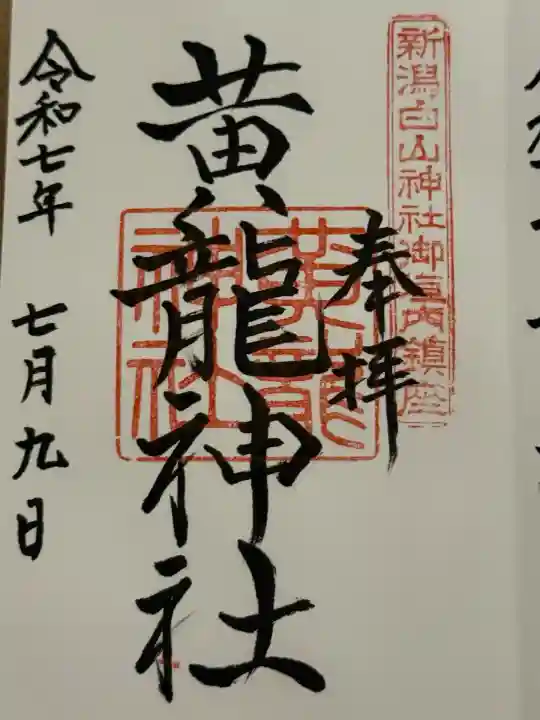 新潟白山神社御境内鎮座
奉拝
黄龍神社
黄龍神社
令和七年 七月九日